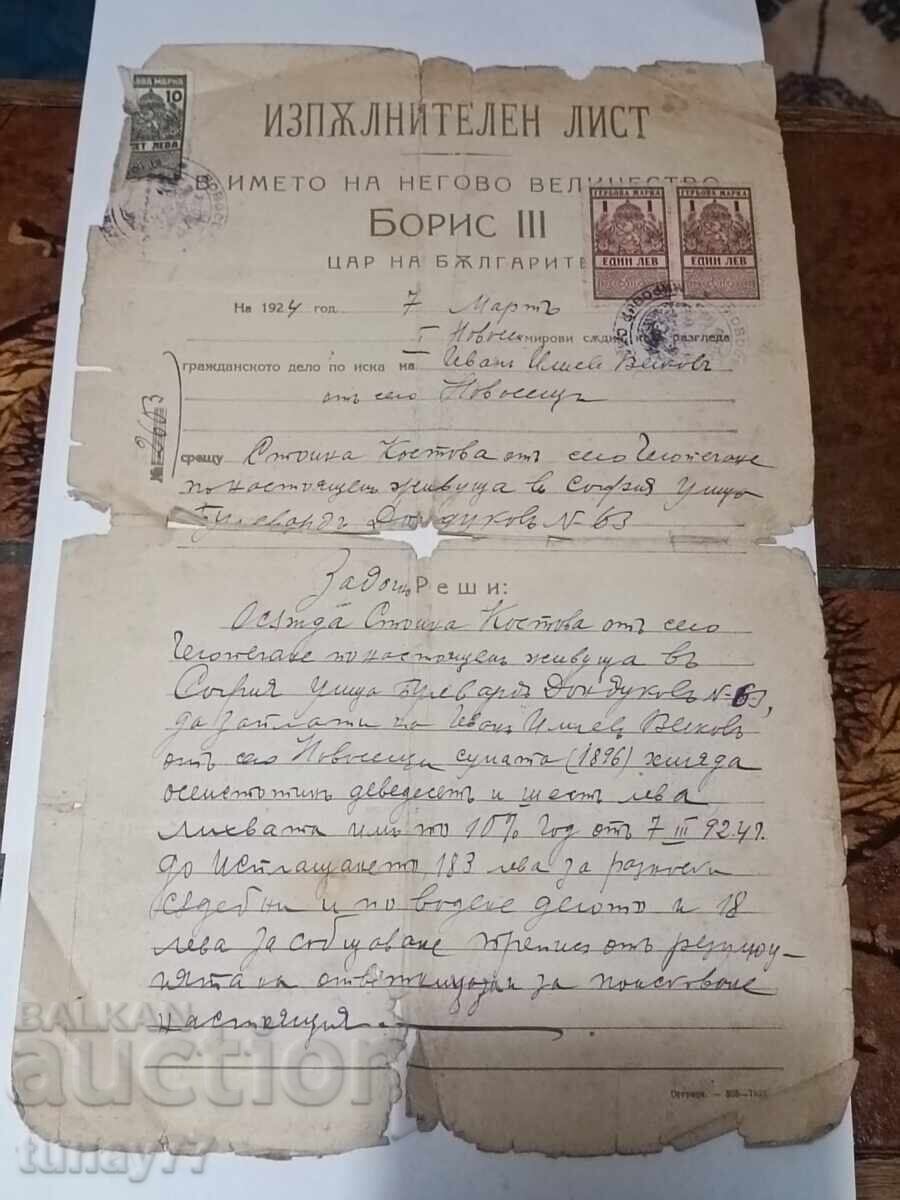 ИЗПѪЛНИТЕЛЕН ЛИСТ
В ИМЕТО НА НЕГОВО ВЕЛИЧЕСТВО
БОРИС III
ЦАР НА БѪЛГАРИТЕ
10
ЛЕВА
ГЕРБОВА МАРКА
1 1
ЕДИН ЛЕВ
ГЕРБОВА МАРКА
1 1
ЕДИН ЛЕВ
На 1924 год. 7 Мартъ
I мирови сѫдия разгледа
гражданското дело по иска на Иванъ Илиев
отъ село Новоселци
№ 2603
срещу Стоина Костова отъ село
понастоящемъ живуща в София улица
Булевардъ Дондуковъ № 63
Задочно Реши:
Осѫжда Стоина Костова отъ село
понастоящемъ живуща въ
София улица Булевардъ Дондуковъ № 63,
да заплати на Иванъ Илиевъ
отъ село Новоселци сумата (1896) хиляда
осемстотинъ деведесетъ и шестъ лева
лихвата имъ по 10% год. отъ 7 III 924 г.
до изплащането, 183 лева за разноски
сѫдебни и по водене делото и 18
лева за съобщаване преписъ отъ резолю-
цията на за поискване
настоящия.
BALKAN
auction
tunay77